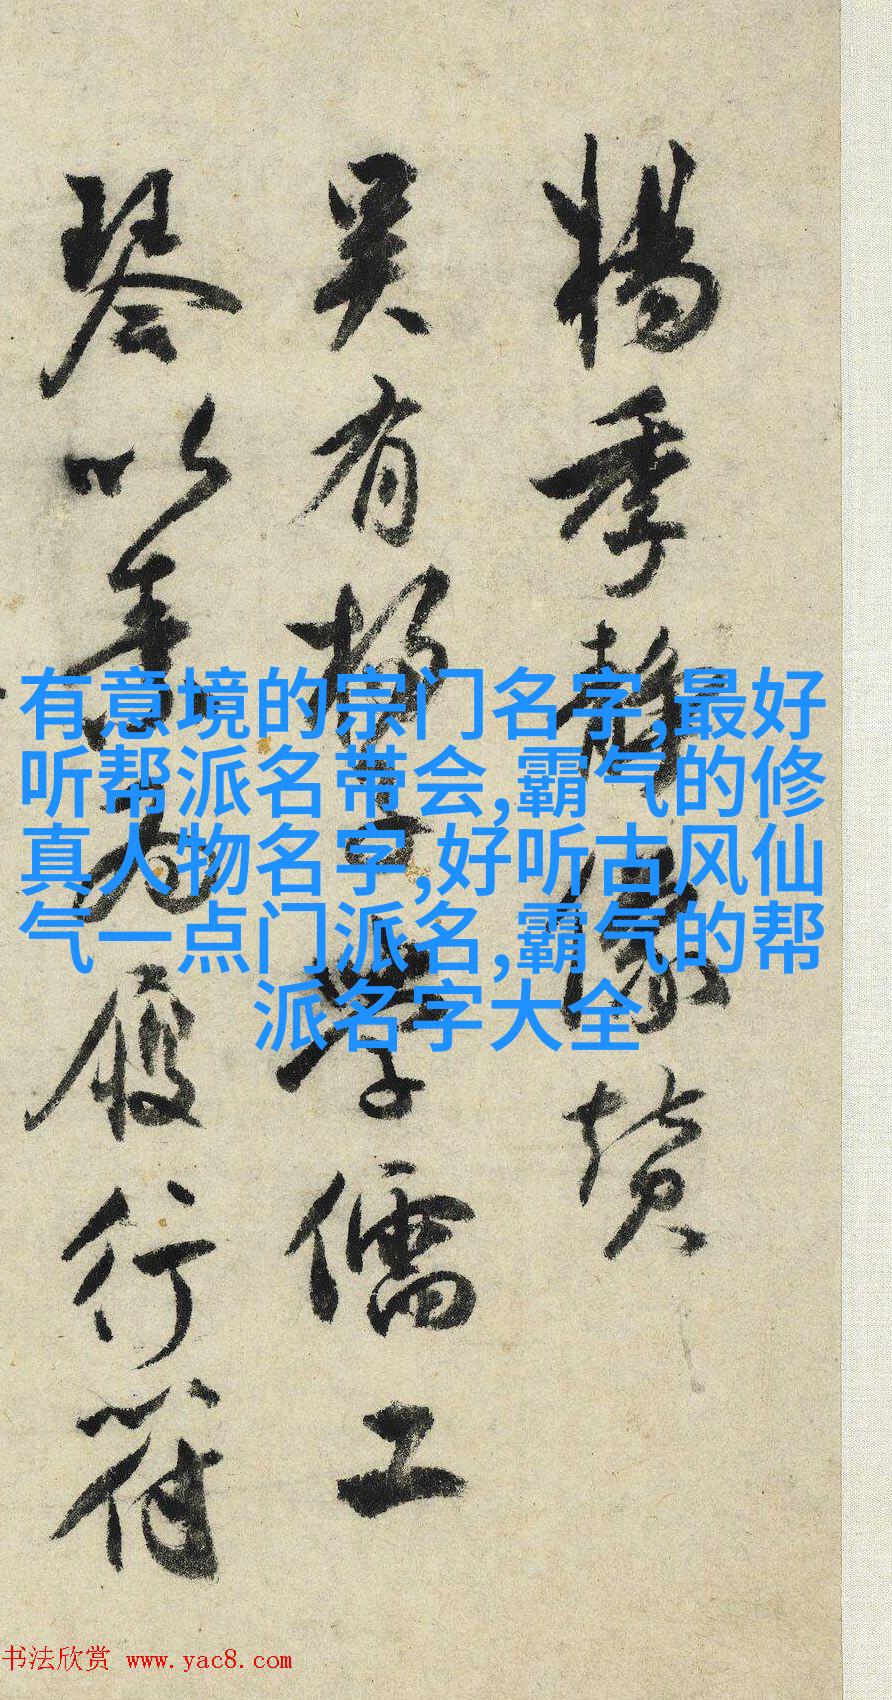 楊季靜像贊
吴有楊子學儒工
琴以善為履行符
有意境的宗门名字,最好
听帮派名带会,霸气的修
真人物名字,好听古风仙
气一点门派名,霸气的帮
派名字大全
书法欣赏 www.yac8.com